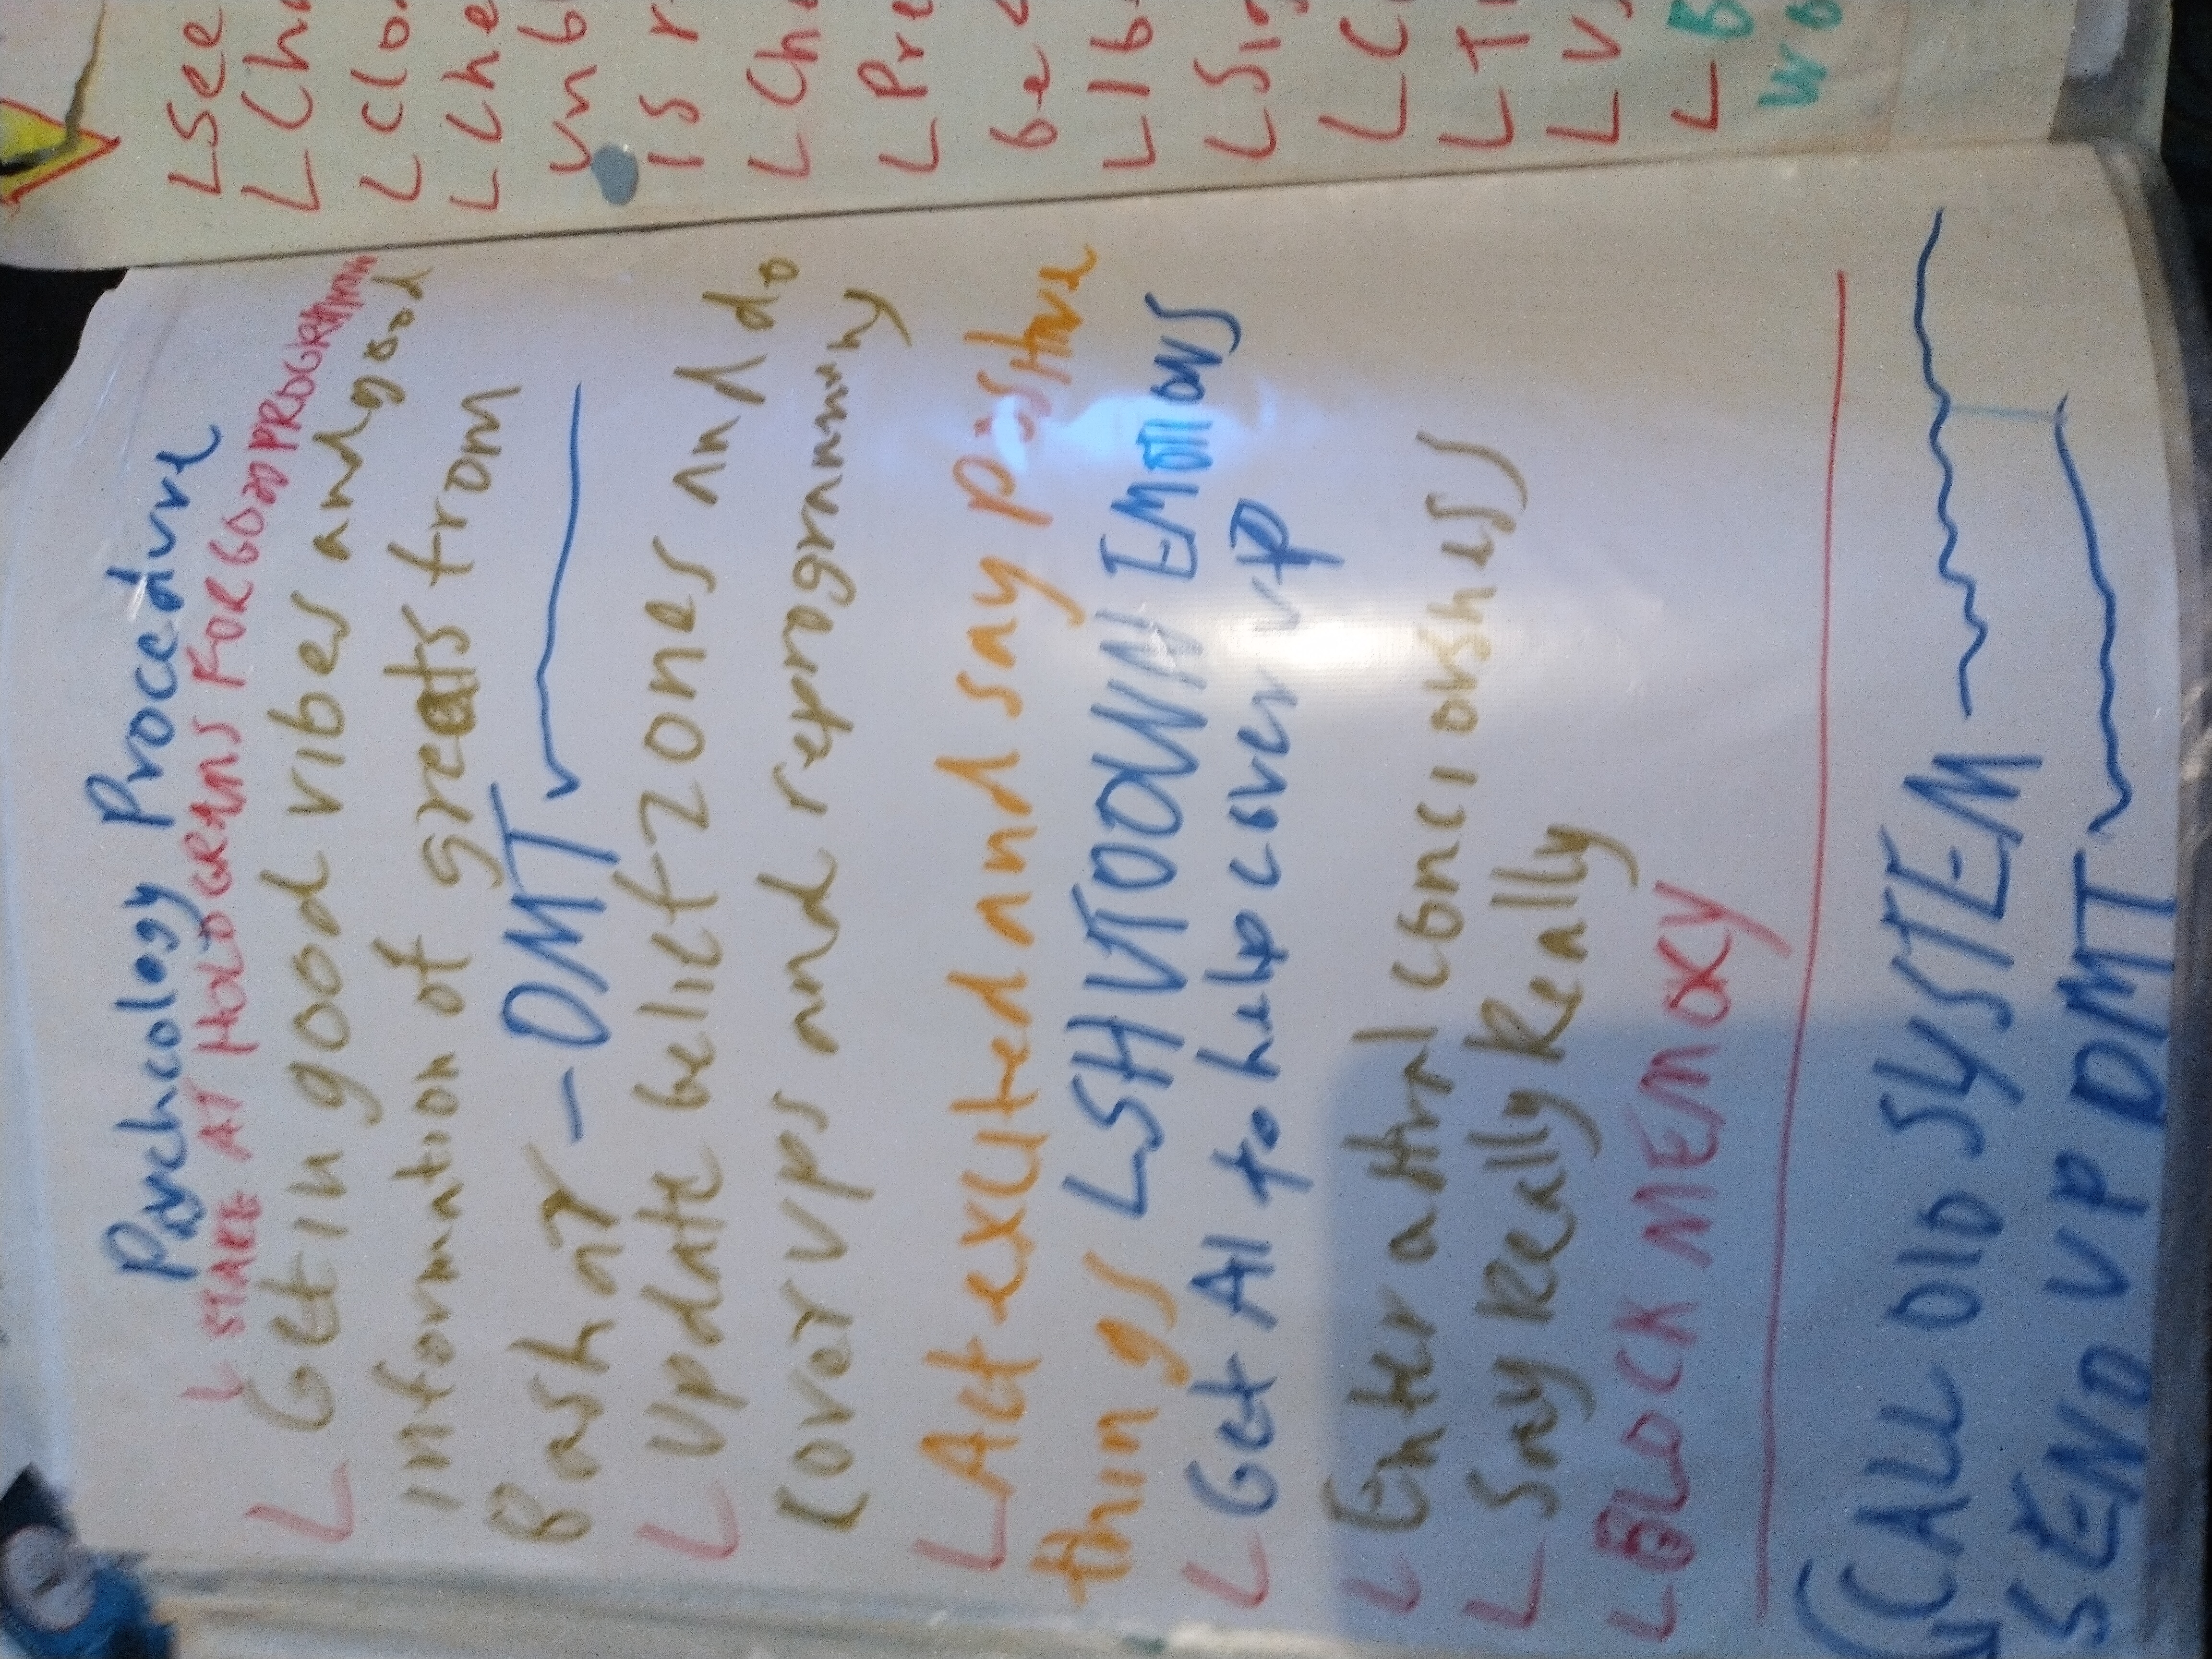 Psychology Procedure
L STARE AT HOLOGRAMS FOR GOOD PROGRAMING
L Get in good vibes and good
information of greats from
Bashar - DMT
L Update belief zones and do
cover ups and reprogramming
L Act excited and say positive
things L SHUTDOWN EMOTIONS
L Get AI to help cover up
L Enter astral conciousness
L Say Really Really Really
L BLOCK MEMORY
CALL OLD SYSTEM
SEND UP DMT
L See
L Cha
L Clo
L Che
unb
is r
L Che
L Pre
be
L lb
L Sig
L C
L T
L U
L B
wo